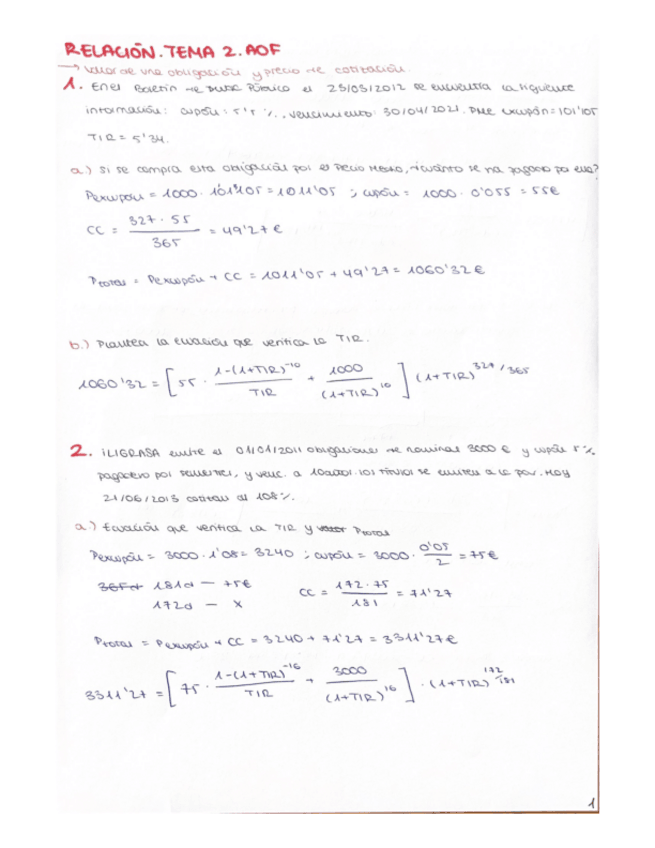 RELACIÓN.TEMA 2.AOF
→ Valor de una obligación y precio de cotización.
1. En el Boletín de Deuda Pública el 23/03/2012 se encuentra la siguiente
información: cupón: 5'5 %, vencimiento: 30/04/2021. PMe excupón = 101'105
TIR = 5'34.
a.) Si se compra esta obligación por el Precio Medio, ¿cuánto se ha pagado por ella?
Pexcupón = 1000 · 101'105 = 1011'05 ; cupón = 1000 · 0'055 = 55€
CC = 327 · 55 / 365 = 49'27€
Ptotal = Pexcupón + CC = 1011'05 + 49'27 = 1060'32€
b.) Plantea la ecuación que verifica la TIR.
1060'32 = [55 · 1-(1+TIR)^-10 / TIR + 1000 / (1+TIR)^10] (1+TIR)^327/365
2. ILIGRASA emite el 01/01/2011 obligaciones de nominal 3000 € y cupón 5%
pagadero por semestres, y venc. a 10 años. Los títulos se emiten a la par. Hoy
21/06/2013 cotizan al 108%.
a.) Ecuación que verifica la TIR y Ptotal
Pexcupón = 3000 · 1'08 = 3240 ; cupón = 3000 · 0'05 / 2 = 75€
365d 181d — 75€
172d — x
CC = 172 · 75 / 181 = 71'27
Ptotal = Pexcupón + CC = 3240 + 71'27 = 3311'27€
3311'27 = [75 · 1-(1+TIR)^-16 / TIR + 3000 / (1+TIR)^16] · (1+TIR)^172/181
1